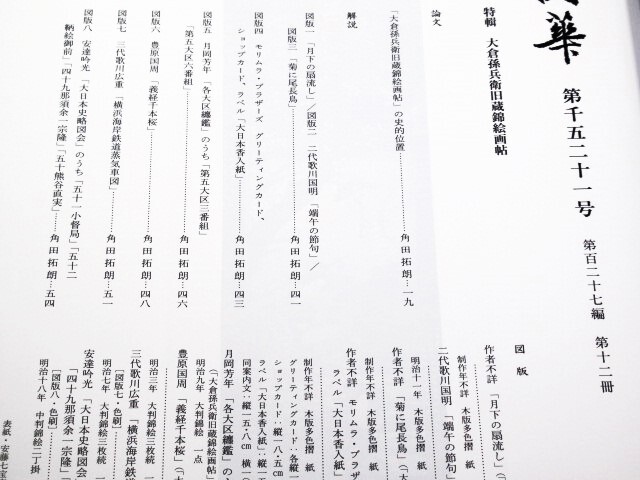 華
第千五二十一号
第百二十七編　第十二冊
特輯　大倉孫兵衛旧蔵錦絵画帖
論文
「大倉孫兵衛旧蔵錦絵画帖」の史的位置……角田拓朗…一九
解説
図版一「月下の扇流し」／図版二　二代歌川国明「端午の節句」／
図版三「菊に尾長鳥」……角田拓朗…四一
図版四　モリムラ・ブラザーズ　グリーティングカード、
ショップカード、ラベル「大日本香人紙」……角田拓朗…四三
図版五　月岡芳年「各大区纏鑑」のうち「第五大区三番組」
「第五大区六番組」……角田拓朗…四六
図版六　豊原国周「義経千本桜」……角田拓朗…四八
図版七　三代歌川広重「横浜海岸鉄道蒸気車図」……角田拓朗…五一
図版八　安達吟光「大日本史略図会」のうち「五十一小督局」「五十二
鞆絵御前」「四十九那須余一宗隆」「五十熊谷直実」……角田拓朗…五四
図版
作者不詳「月下の扇流し」（大
制作年不詳　木版多色摺　紙
二代歌川国明「端午の節句」
明治十一年　木版多色摺　紙
作者不詳「菊に尾長鳥」（大
制作年不詳　木版多色摺　紙
作者不詳　モリムラ・ブラザ
ラベル「大日本香人紙」
制作年不詳　木版多色摺　紙
グリーティングカード：各縦一
ショップカード：縦八・五cm
ラベル「大日本香人紙」：縦一
同案内文：縦一五・八cm　横
月岡芳年「各大区纏鑑」の
（「大倉孫兵衛旧蔵錦絵画帖」
明治九年　大判錦絵　一点
豊原国周「義経千本桜」（大
明治三年　大判錦絵三枚続　一
［図版七・色刷］
三代歌川広重「横浜海岸鉄道
明治七年　大判錦絵三枚続　一
［図版八・色刷］
安達吟光「大日本史略図会
「四十九那須余一宗隆」「
明治十八年　中判錦絵二丁掛
表紙・安藤七宝